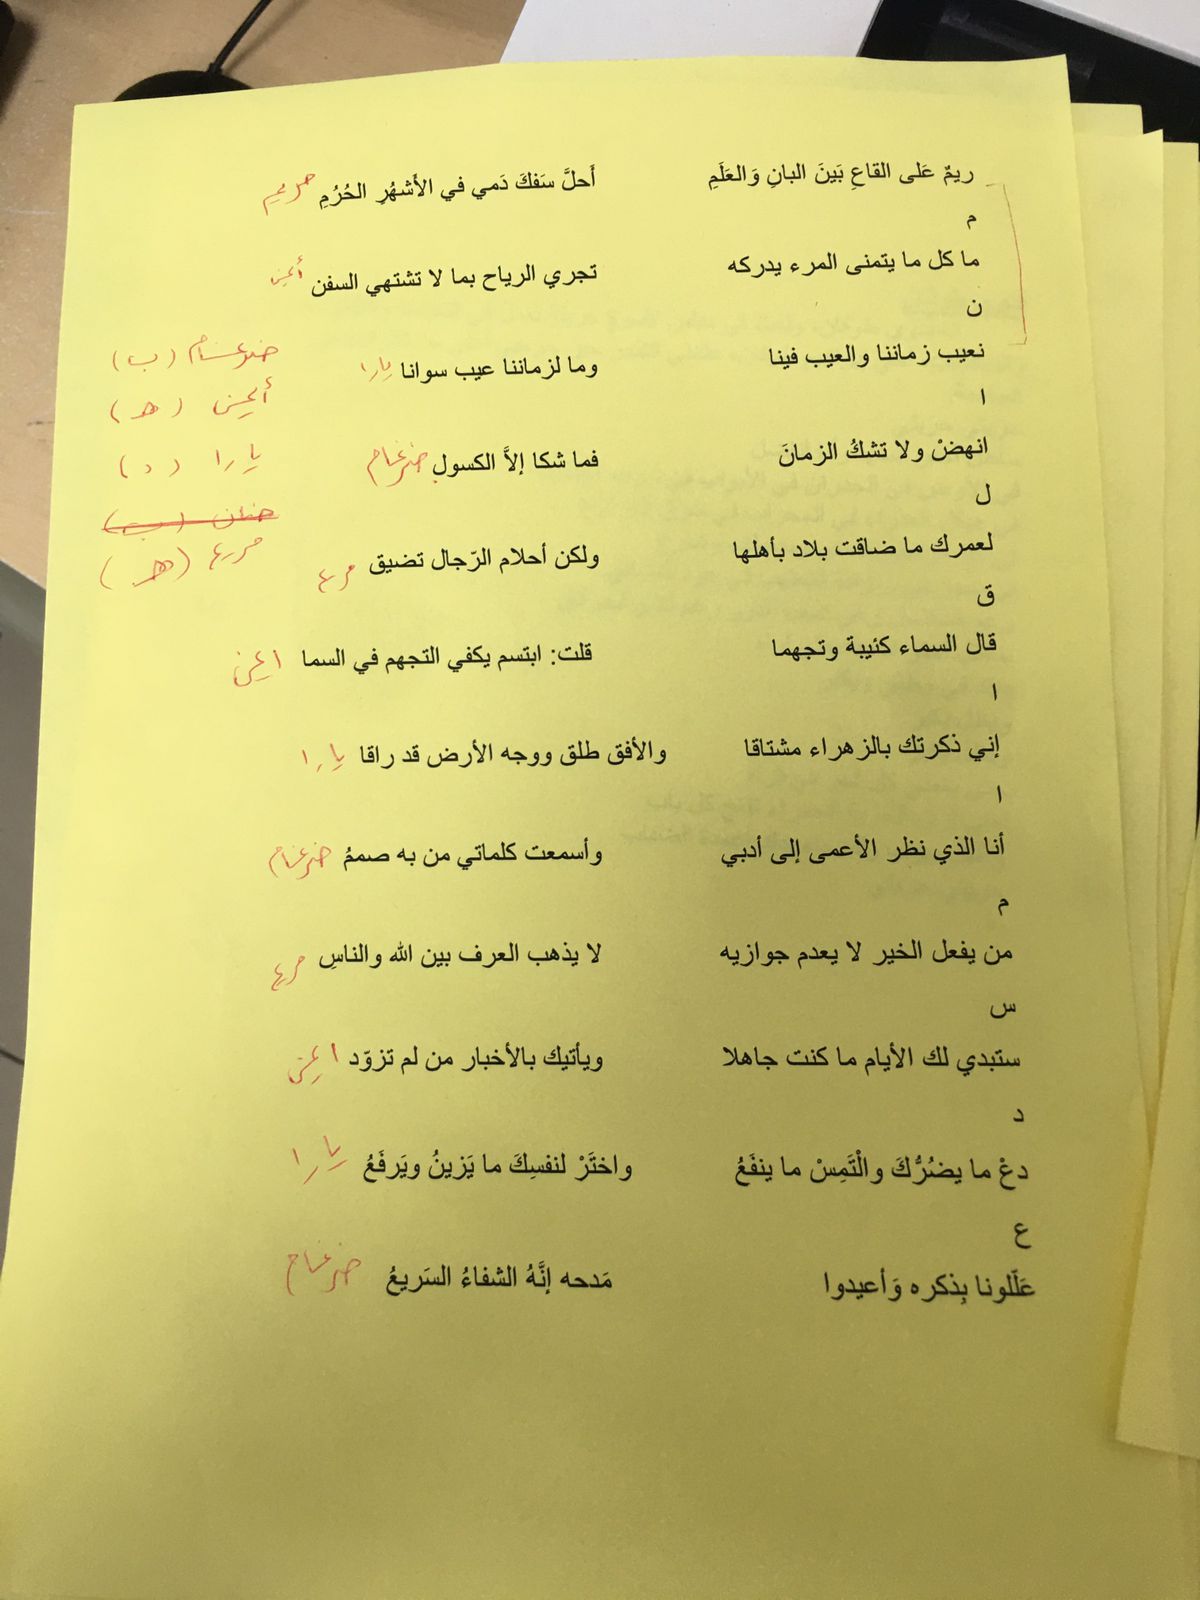 ريمٌ عَلى القاعِ بَينَ البانِ وَالعَلَمِ أَحلَّ سَفكَ دَمي في الأَشهُرِ الحُرُمِ مريم
م
ما كل ما يتمنى المرء يدركه تجري الرياح بما لا تشتهي السفن أيمن
ن
نعيب زماننا والعيب فينا وما لزماننا عيب سوانا يارا
ضرغام (ب)
ا
أيمن (هـ)
انهضْ ولا تشكُ الزمانَ فما شكا إلاَّ الكسول ضرغام
يارا (د)
ل
حنان (ب)
لعمرك ما ضاقت بلاد بأهلها ولكن أحلام الرّجال تضيق مريم
مريم (هـ)
ق
قال السماء كئيبة وتجهما قلت: ابتسم يكفي التجهم في السما ايمن
ا
إني ذكرتك بالزهراء مشتاقا والأفق طلق ووجه الأرض قد راقا يارا
ا
أنا الذي نظر الأعمى إلى أدبي وأسمعت كلماتي من به صممُ ضرغام
م
من يفعل الخير لا يعدم جوازيه لا يذهب العرف بين الله والناسِ مريم
س
ستبدي لك الأيام ما كنت جاهلا ويأتيك بالأخبار من لم تزوّد ايمن
د
دعْ ما يضُرُّكَ والْتَمِسْ ما ينفَعُ واختَرْ لنفسِكَ ما يَزينُ ويَرفَعُ يارا
ع
عَلّلونا بِذكره وَأعيدوا مَدحه إنَّهُ الشفاءُ السَريعُ ضرغام